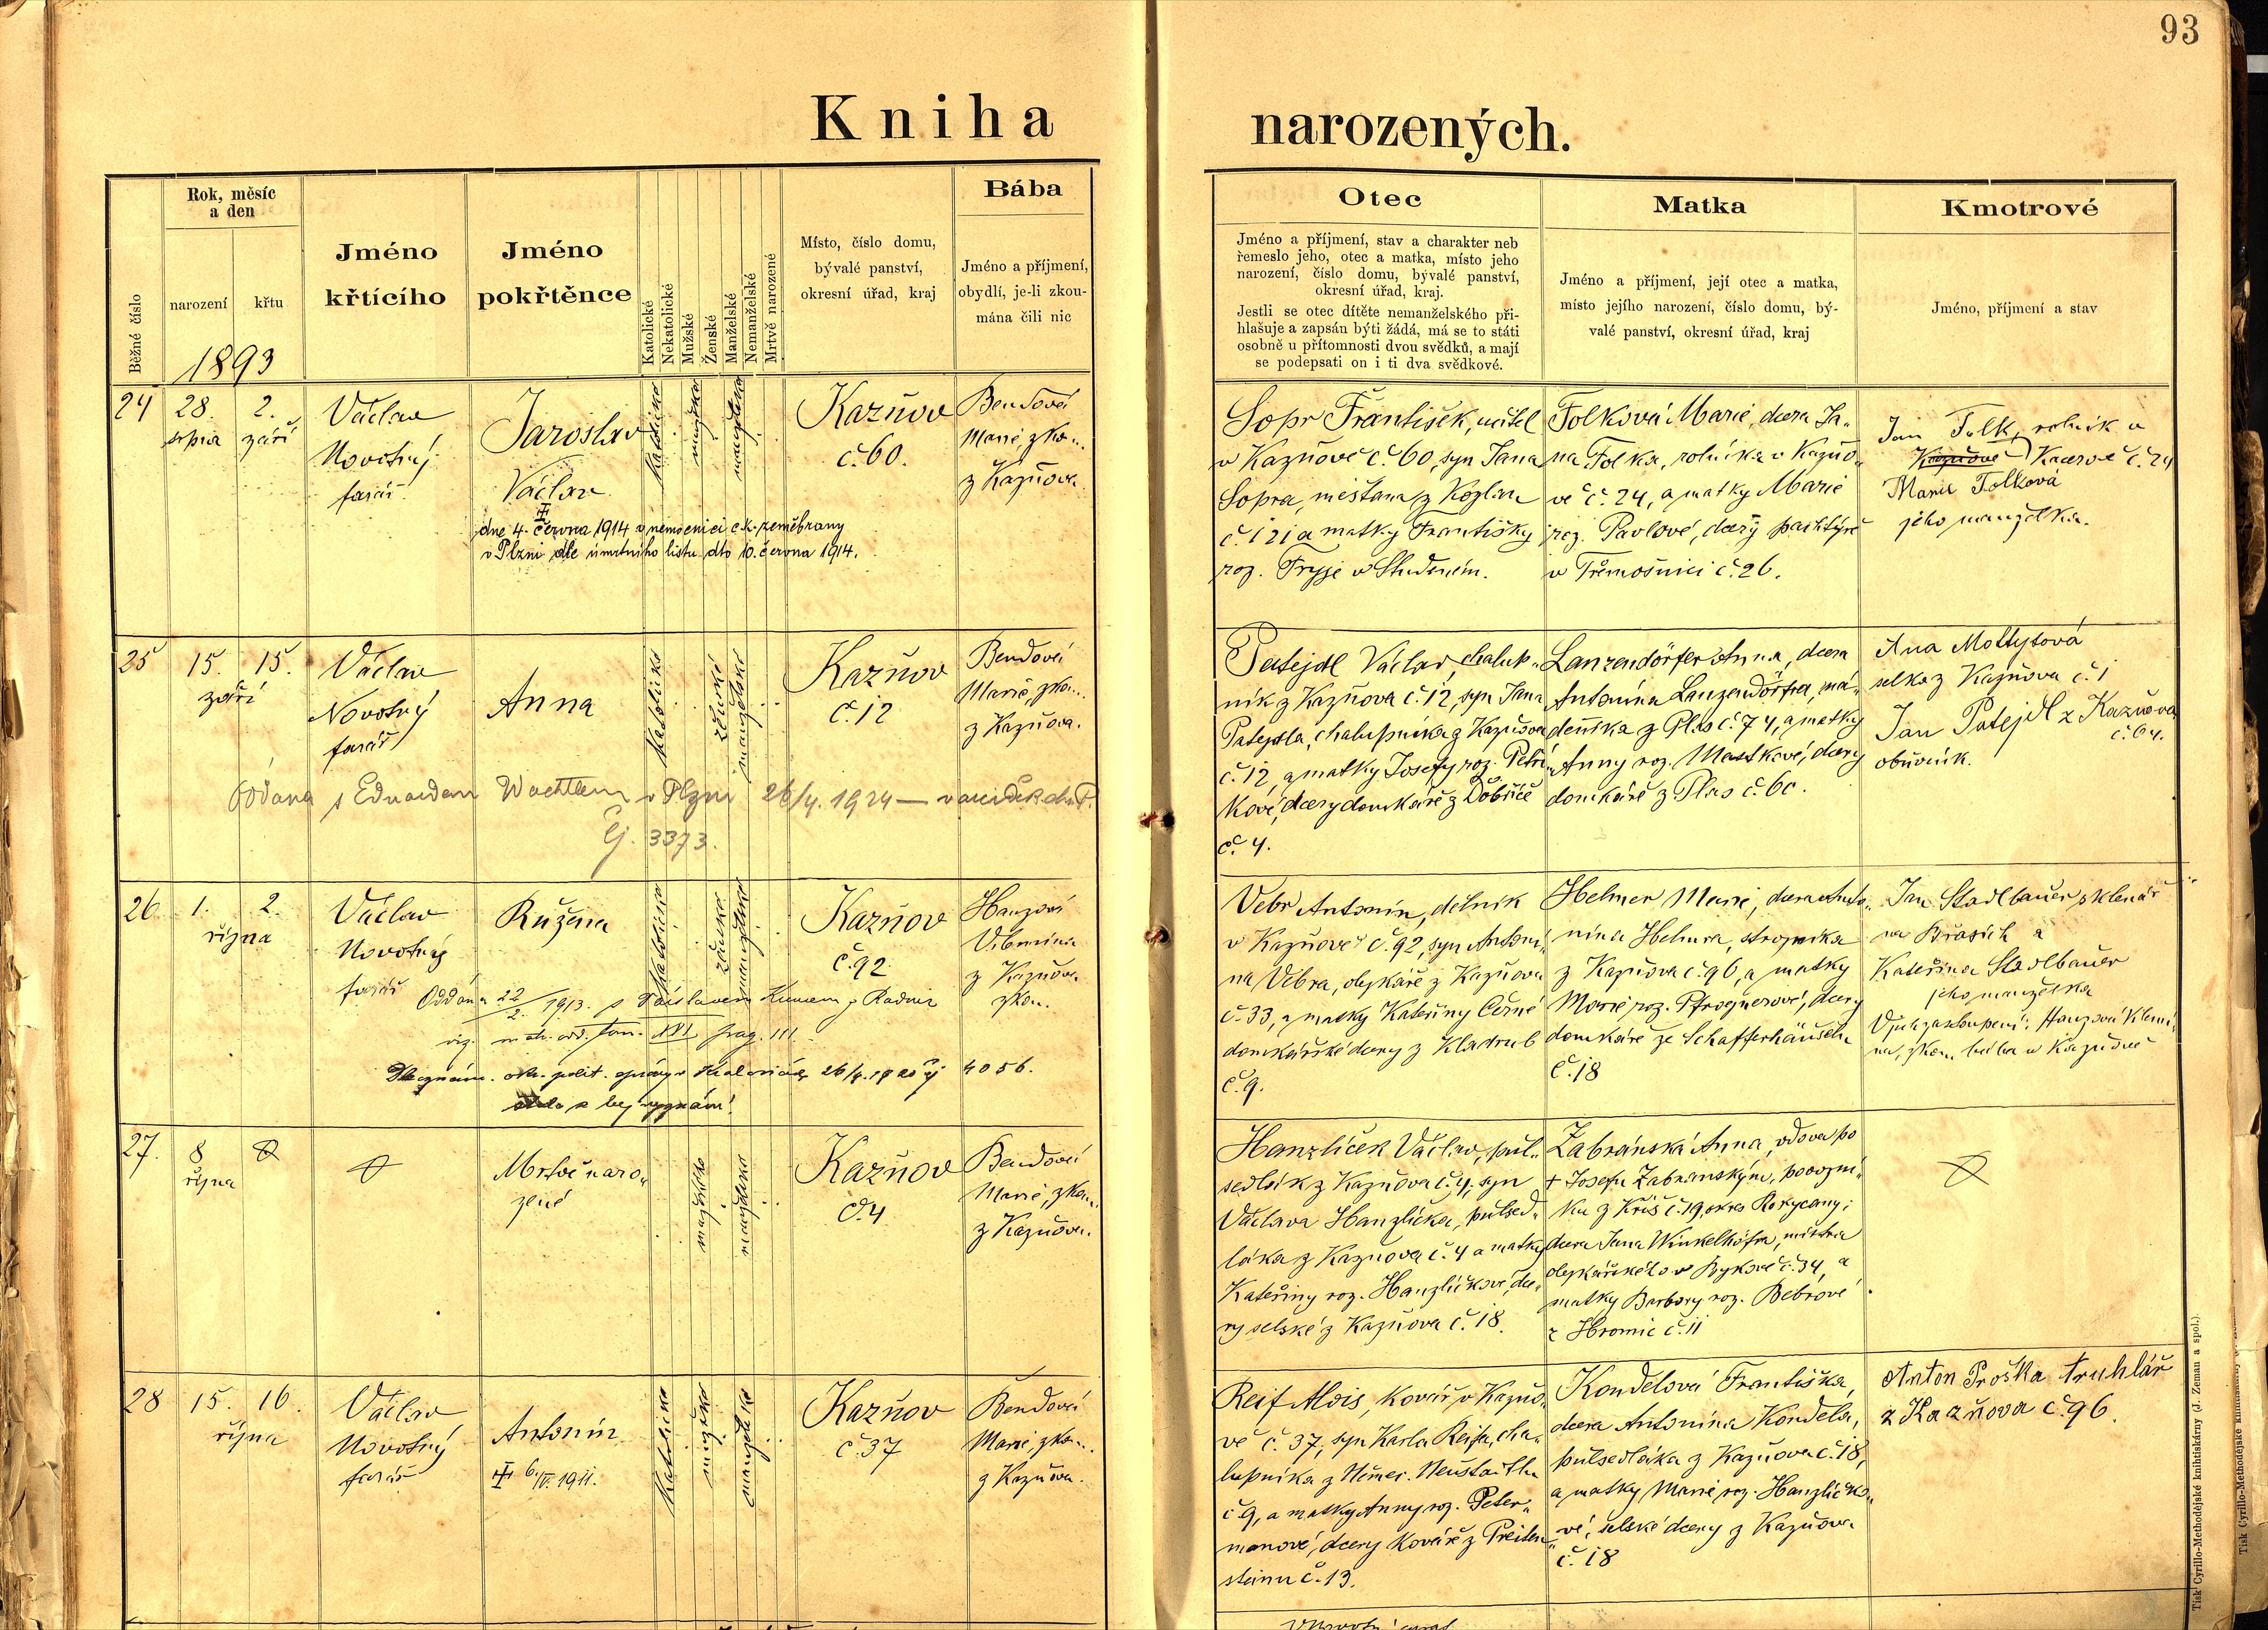 93
Kniha narozených.
Běžné číslo
Rok, měsíc
a den
narození
křtu
1893
Jméno
křtícího
Jméno
pokřtěnce
Katolické
Nekatolické
Mužské
Ženské
Manželské
Nemanželské
Mrtvě narozené
Místo, číslo domu,
bývalé panství,
okresní úřad, kraj
Bába
Jméno a příjmení,
obydlí, je-li zkou-
mána čili nic
Otec
Jméno a příjmení, stav a charakter neb
řemeslo jeho, otec a matka, místo jeho
narození, číslo domu, bývalé panství,
okresní úřad, kraj.
Jestli se otec dítěte nemanželského při-
hlašuje a zapsán býti žádá, má se to státi
osobně u přítomnosti dvou svědků, a mají
se podepsati on i ti dva svědkové.
Matka
Jméno a příjmení, její otec a matka,
místo jejího narození, číslo domu, bý-
valé panství, okresní úřad, kraj
Kmotrové
Jméno, příjmení a stav
24
28.
srpna
2.
září
Václav
Novotný
farář
Jaroslav
Václav
dne 4. června 1914 v nemocnici c.k. zeměbrany
v Plzni dle úmrtního listu dto 10. června 1914.
katolické
mužské
manželské
Kazňov
č. 60.
Bendová
Marie, zko..
z Kazňova
Sopr František, učitel
v Kazňově č. 60, syn Jana
Sopra, měštana z Kozlan
č. 121 a matky Františky
roz. v Studeném.
Folková Marie, dcera Ja-
na Folka, rolníka v Kazňo-
vě č. 24, a matky Marie
roz. Pavlové, dcery
v Třemošnici č. 26.
Jan Folk, rolník v
Kazňově Kacerově č. 24
Marie Folkova
jeho manželka.
25
15.
15.
září
Václav
Novotný
farář
Anna
katolické
ženské
manželské
Kazňov
č. 12
Bendová
Marie, zko...
z Kazňova.
Oddana s Eduardem Wachtlem v Plzni 26/4. 1924 —
čj. 3373.
Patejdl Václav, chalup-
ník z Kazňova č. 12, syn Jana
Patejdla, chalupníka z Kazňova
č. 12, a matky Josefy roz. Petří-
kové, dcery domkáře z Dobříče
č. 4.
Lanzendörfer Anna, dcera
Antonína Lanzendörfra, ná-
deníka z Plas č. 74, a matky
Anny roz. Mastkové, dcery
domkáře z Plas č. 60.
Ana Moltysová
selka z Kazňova č. 1
Jan Patejdl z Kazňova
č. 64.
obuvník.
26
1.
2.
října
Václav
Novotný
farář
Růžena
katolické
ženské
manželské
Kazňov
č. 92
Hanzová
z Kazňova
zkou.
Oddána 22/2. 1913. s z Radnic
viz. mat. odd. tom. XVI pag. III.
26/4. 19 čj 4056.
Vebr Antonín, dělník
v Kazňově č. 92, syn Antoní-
na Vebra, olejkáře z Kazňova
č. 33, a matky Kateřiny Černé
domkářské dcery z Kladrub
č. 9.
Helmer Marie, dcera Anto-
nína Helmra, strojníka
z Kazňova č. 96, a matky
Marie roz. Pfrognerové, dcery
domkáře ze Schafferhäuseln
č. 18
Jan Stadlbauer, sklenář
na Břasích a
Kateřina Stadlbauer
jeho manželka
V jich zastoupení: Hanzová Vilemí-
na, zkou. bába v Kazňově
27.
8
října
Mrtvě naro-
zené
mužské
manželské
Kazňov
č. 4
Bendová
Marie, zkou.
z Kazňova.
Hanzlíček Václav, půl-
sedlák z Kazňova č. 4, syn
Václava Hanzlíčka, půlsed-
láka z Kazňova č. 4 a matky
Kateřiny roz. Hanzlíčkové, dce-
ry selské z Kazňova č. 18.
Zabránská Anna, vdova po
+ Josefu Zabranským, povozní-
ku z Kříš č. 19, okres Rokycany;
dcera Jana Winkelhöfra, mistra
olejkářského v Bykově č. 34, a
matky Barbory roz. Bebrové
z Hromic č. 11
28
15.
16.
října
Václav
Novotný
farář
Antonín
6/IV. 1911.
katolické
mužské
manželské
Kazňov
č. 37
Bendová
Marie, zko...
z Kazňova.
Reif Alois, kovář v Kazňo-
vě č. 37, syn Karla Reifa, cha-
lupníka z Němec. Neustadtlu
č. 9, a matky Anny roz. Peter-
manové, dcery kováře z Preiten-
steinu č. 13.
Kondelová Františka,
dcera Antonína Kondela,
půlsedláka z Kazňova č. 18,
a matky Marie roz. Hanzlíčko-
vé, selské dcery z Kazňova
č. 18
Anton Proška truhlář
z Kazňova č. 96.
Tisk Cyrillo-Methodějské knihtiskárny (J. Zeman a spol.)